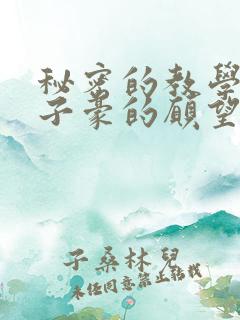 秘密的教學
子豪的願望
子桑林兒
未經同意禁止轉載